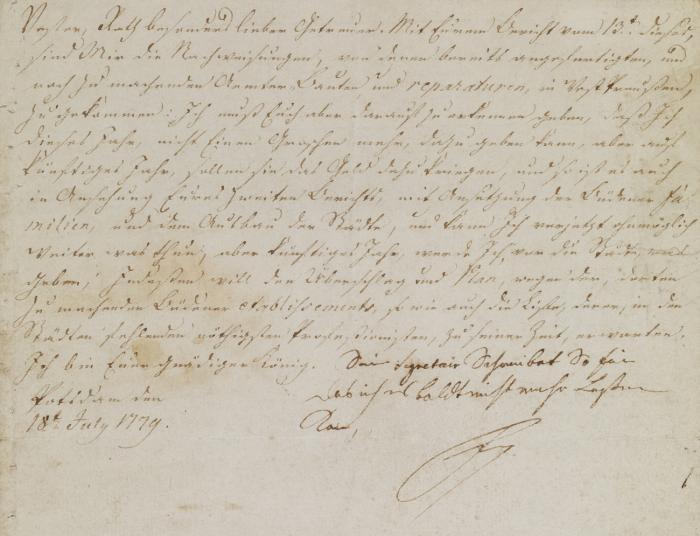 Vester, Rath besonders lieber Getreuer. Mit Eurem Bericht vom 13t. dieses,
sind Mir die Nachweisungen, von denen bereits angefertigten, und
noch zu machenden Aemter Bauten und reparaturen, in WestPreußen,
zugekommen: Ich muß Euch aber darauf zu erkennen geben, daß Ich
dieses Jahr, nicht Einen Groschen mehr, dazu geben kann, aber auf
künftiges Jahr, sollen sie das Geld dazu kriegen, und so ist es auch
in Ansehung Eures zweiten Berichts, mit Ansetzung der Büdener Fa-
milien, und dem Ausbau der Städte, und kann Ich vorjetzt ohnmöglich
weiter was thun, aber künftiges Jahr, werde Ich, vor die Städte, was
geben; Indessen will den Überschlag und Plan, wegen der, dorten
zu machenden Büdener etablissements, so wie auch die Liste, derer, in den
Städten fehlenden nöthigsten Professionisten, zu seiner Zeit, erwarten.
Ich bin Euer gnädiger König. Sein Secretair Schreibet So fein
Das ich es baldt nicht mehr Lesen
Kan,
Potsdam den
18t. July 1779.